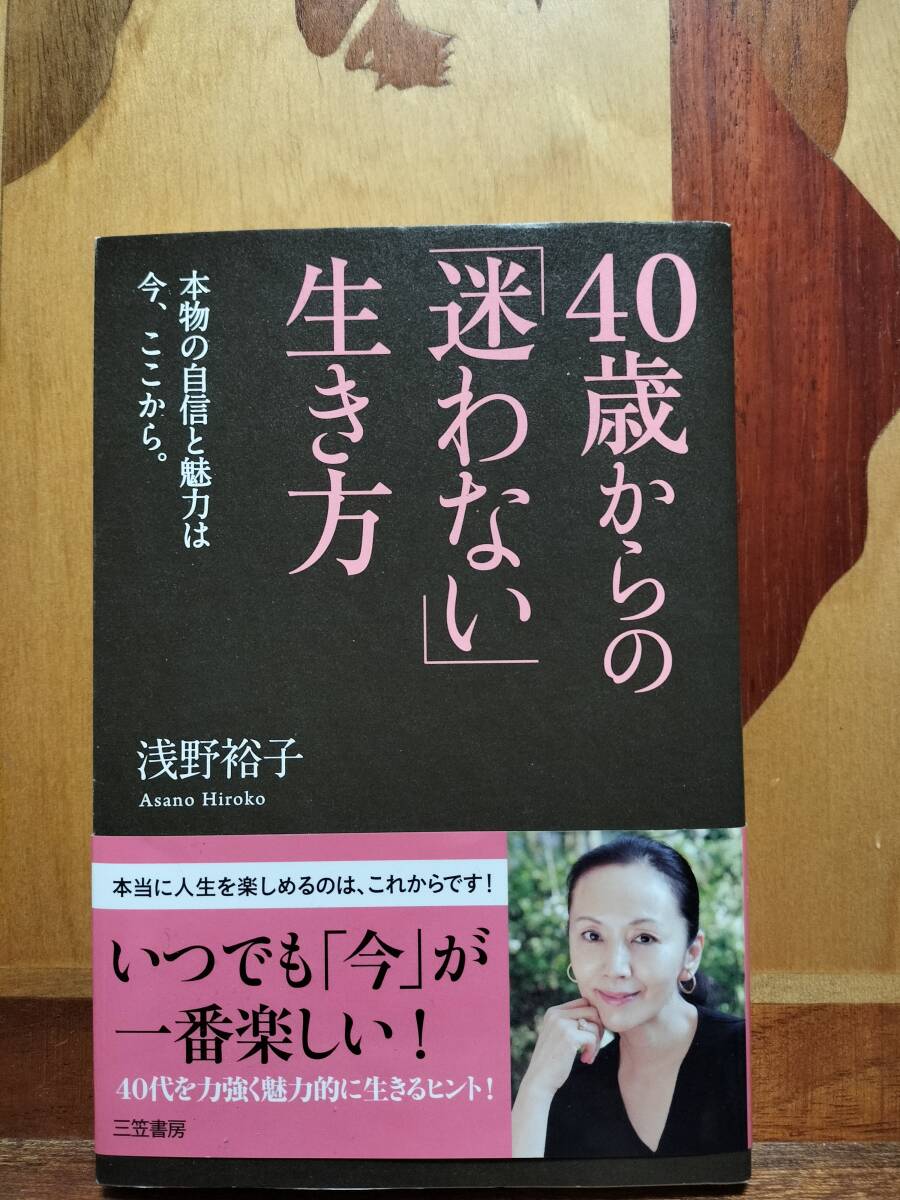 40歳からの
「迷わない」
生き方
本物の自信と魅力は
今、ここから。
浅野裕子
Asano Hiroko
本当に人生を楽しめるのは、これからです！
いつでも「今」が
一番楽しい！
40代を力強く魅力的に生きるヒント！
三笠書房